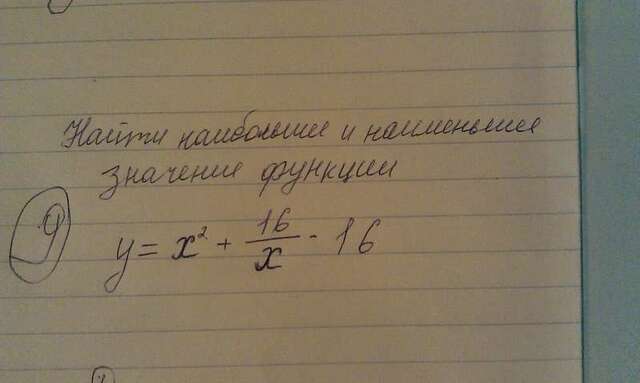 Найти наибольшее и наименьшее
значение функции
9
y = x² + 16/x - 16